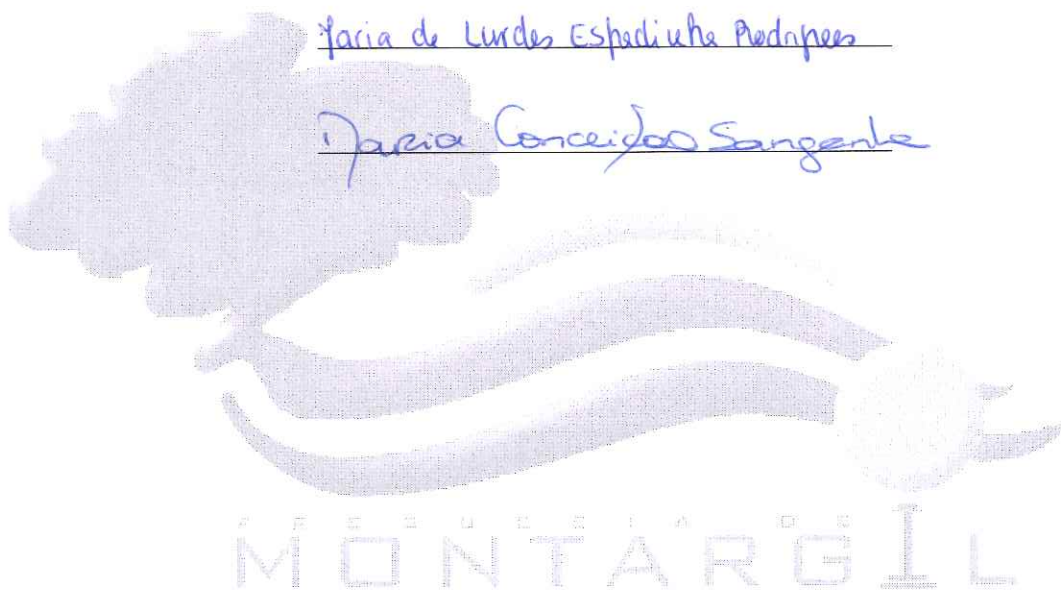 Maria de Lurdes Espadinha Rodrigues
Maria Conceição Sangenha
FREGUESIA DE
MONTARGIL